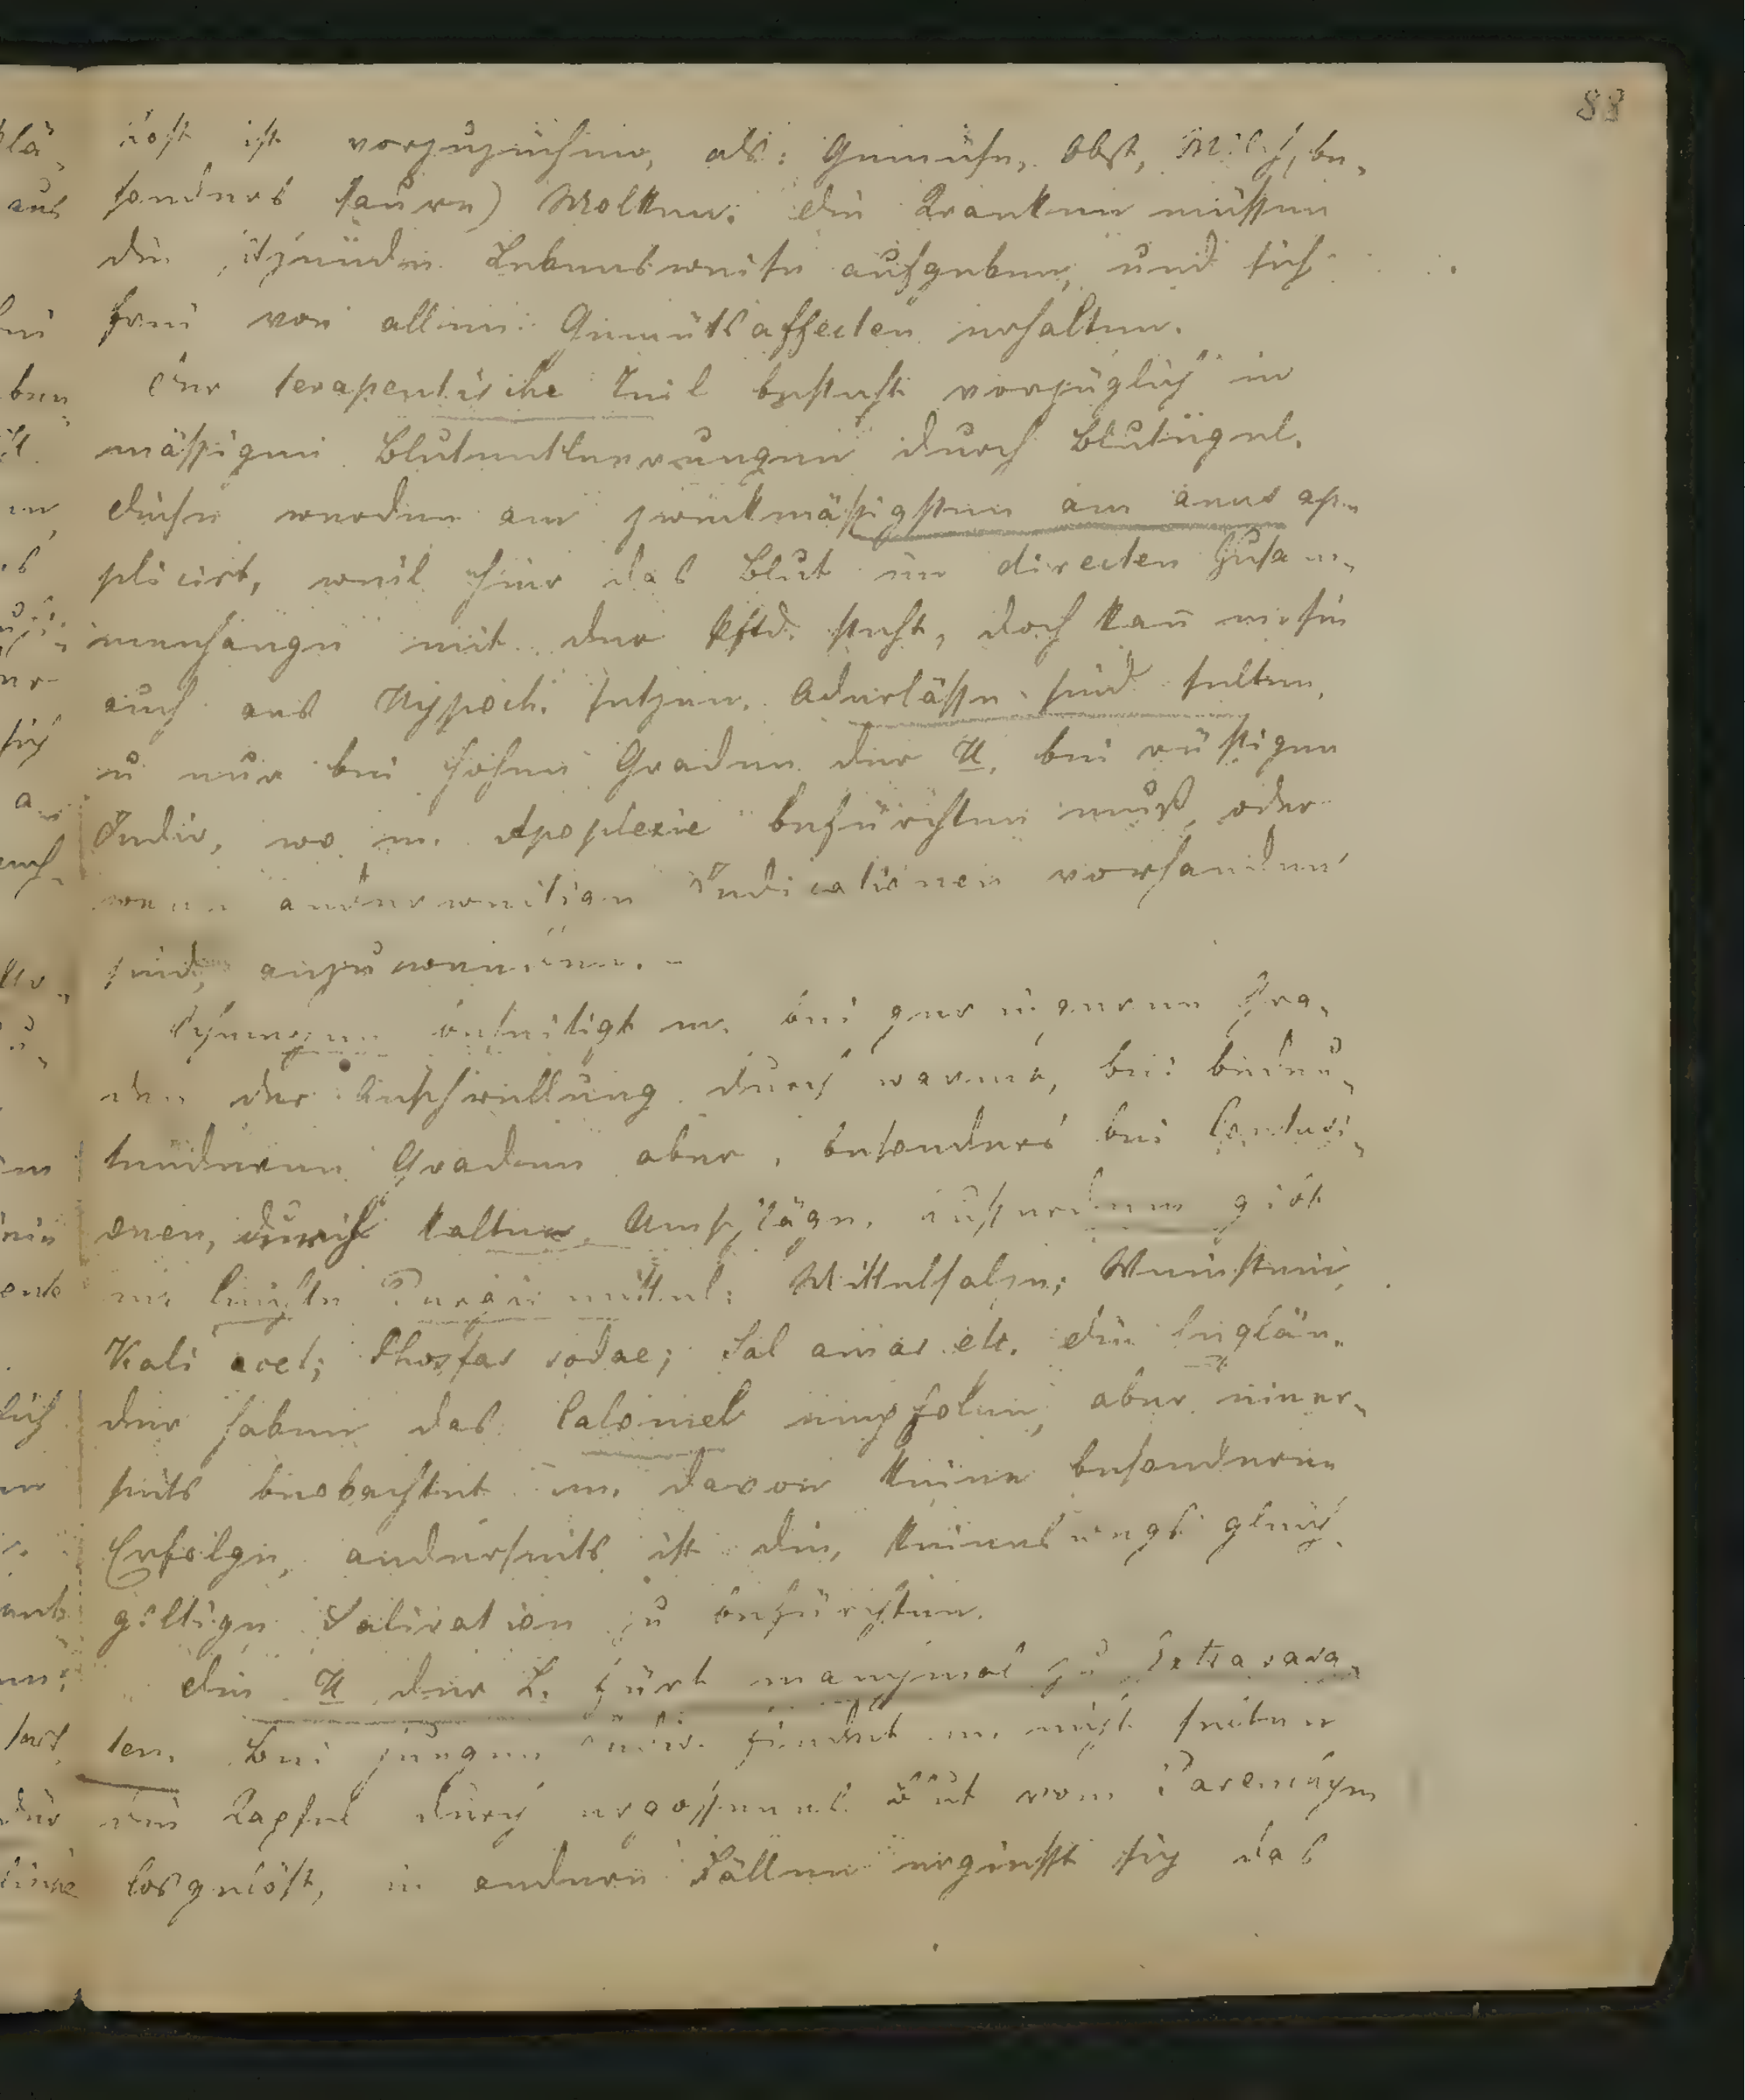 88
kost ist vorzuziehen, als: Gemüse, Obst, Milch, (be„
sonders saure) Molken. Die Kranken müssen
die sitzende Lebensweise aufgeben, und sich
frei von allen Gemütsaffecten erhalten.
Der terapeutische Teil besteht vorzüglich in
mässigen Blutentleerungen durch Blutiegel.
Diese werden am zweckmässigsten am anus ap„
plicirt, weil hier das Blut im directen Zusam„
menhange mit der Pftd. steht, doch kan̄ m. sie
auch ans Hypoch. setzen. Aderlässe sind selten,
u nur bei hohen Graden der H. bei rüstigen
Indiv. wo m. Apoplexie befürchten muß, oder
wenn anderweitige Indicationen vorhanden
sind, anzuwenden. –
Schmerzen beseitigt m. bei geringeren Gra„
den der Anschwellung durch warme, bei bedeu„
tenderen Graden aber, besonders bei Contusi„
onen, durch kalte Umschläge. Ausserdem gibt
m. leichte Purgirmittel: Mittelsalze; Weinstein,
Kali acet; Phosfas sodae; Sal amar etc. Die Englän„
der haben das Calomel empfolen, aber einer„
seits beobachtet m. davon keine besonderen
Erfolge, anderseits ist die, keineswegs gleich„
giltige Salivation zu befürchten.
Die H der L. fürt manchmal zu Extravasa„
ten. Bei jungen Indiv. findet m. nicht selten
die Kapsel durch ergossenes Blut vom Parenchym
losgelöst, in andern Fällen ergiesst sich das